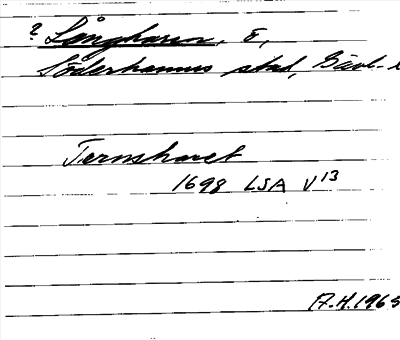 ? Långharen, ö,
Söderhamns stad, Gävl. l
Ternsharet
1698 LSA V13
A.H. 1965